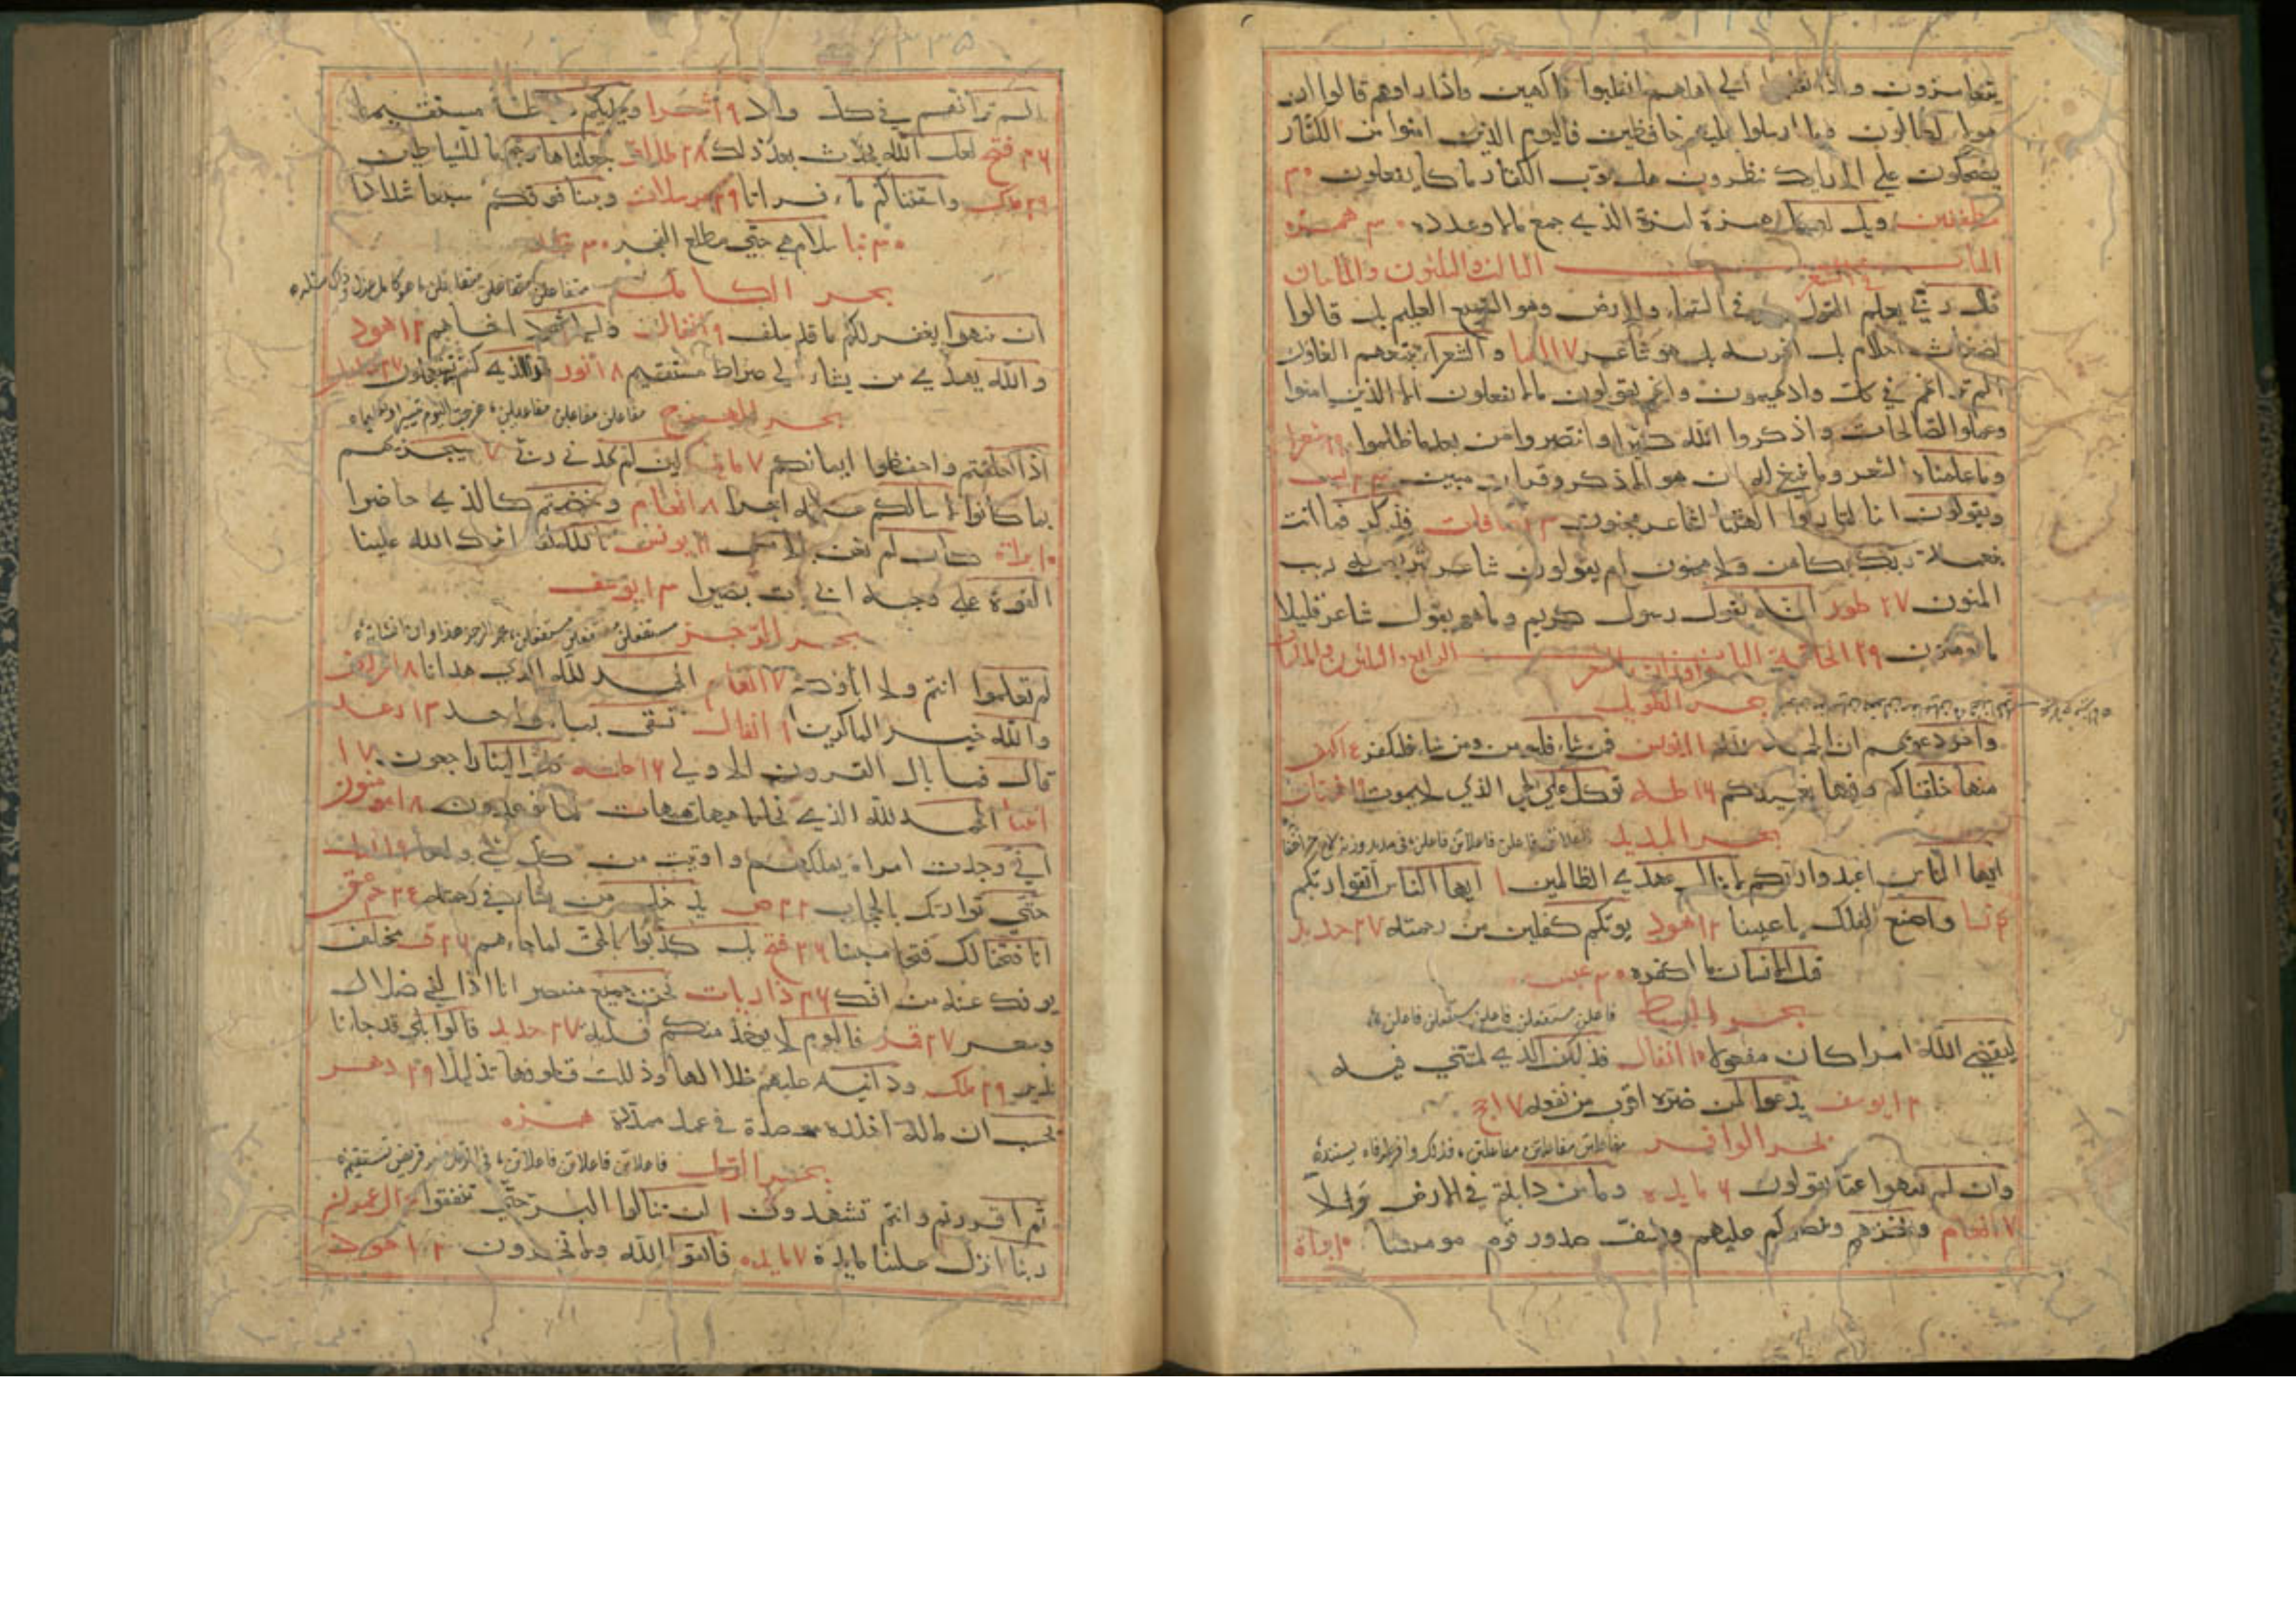 يتغامزون واذا انقلبوا الي اهلهم انقلبوا فاكهين واذا راوهم قالوا ان
هولا لضالون وما ارسلوا عليهم حافظين فاليوم الذين امنوا من الكفار
يضحكون علي الارايك ينظرون هل ثوب الكفار ما كانوا يفعلون ٣٠
مطففين ويل لكل همزة لمزة الذي جمع مالا وعدده ٣٠ همزه
الباب الثالث والثلثون والماتان
في الشعر
قال ربي يعلم القول في السماء والارض وهو السميع العليم بل قالوا
اضغاث احلام بل افتريه بل هو شاعر ١٧ انبيا والشعراء يتبعهم الغاون
الم تر انهم في كل واد يهيمون وانهم يقولون ما لا يفعلون الا الذين امنوا
وعملوا الصالحات واذكروا الله كثيرا وانتصروا من بعد ما ظلموا ١٩ شعرا
وما علمناه الشعر وما ينبغي له ان هو الا ذكر وقران مبين ٢٣ يس
ويقولون انا لتاركوا الهتنا لشاعر مجنون ٢٣ صافات فذكر فما انت
بنعمة ربك بكاهن ولا مجنون ام يقولون شاعر نتربص به ريب
المنون ٢٧ طور انه لقول رسول كريم وما هو بقول شاعر قليلا
ما تومنون ٢٩ الحاقه الباب الرابع والثلثون والماتان
واوزان الشعر
بحر الطويل
واخر دعويهم ان الحمد لله ١١ يونس فمن شاء فليومن ومن شاء فليكفر كهف
منها خلقناكم وفيها نعيدكم ١٦ طه توكل علي الحي الذي لا يموت ١٩ فرقان
بحر المديد فاعلاتن فاعلن فاعلاتن فاعلن
ايها الناس اعبدوا ربكم لا ينال عهدي الظالمين ١ ايها الناس اتقوا ربكم
٤ نسا واصنع الفلك باعيننا ١٢ هود يوتكم كفلين من رحمته ٢٧ حديد
قتل الانسان ما اكفره ٣٠ عبس
بحر البسيط فاعلن مستفعلن فاعلن مستفعلن فاعلن
ليقضي الله امرا كان مفعولا ١٠ انفال فذلكن الذي لمتنني فيه
١٢ يوسف يدعوا لمن ضره اقرب من نفعه ١٧ حج
بحر الوافر مفاعلتن مفاعلتن مفاعلتن
وان لم ينتهوا عما يقولون ٦ مايده وما من دابة في الارض ولا
٧ انعام ويخزهم وينصركم عليهم ويشف صدور قوم مومنينا ١٠ براة
٣٣٥
الم تر انهم في كل واد ١٩ شعرا ويهديكم صراطا مستقيما
٢٦ فتح لعل الله يحدث بعد ذلك ٢٨ طلاق جعلناها رجوما للشياطين
٢٩ ملك واسقيناكم ماء فراتا ٢٩ مرسلات وبنينا فوقكم سبعا شدادا
٣٠ نبا سلام هي حتي مطلع الفجر ٣٠ قدر
بحر الكامل متفاعلن متفاعلن متفاعلن
ان ينتهوا يغفر لكم ما قد سلف ٩ انفال والي ثمود اخاهم ١٢ هود
والله يهدي من يشاء الي صراط مستقيم ١٨ نور
بحر الهزج مفاعلن مفاعلن مفاعلن
اذا حلفتم واحفظوا ايمانكم ٧ مايده لين لم يهدني ربي ٧ سيجزيهم
بما كانوا لا اسالكم عليه اجرا ٨ انعام وخضتم كالذي خاضوا
١٠ براة كان لم تغن بالامس ١١ يونس تالله لقد اثرك الله علينا
القوه علي وجه ابي يات بصيرا ١٣ يوسف
بحر الرجز مستفعلن مستفعلن مستفعلن
لم تعلموا انتم ولا اباوكم ٧ انعام الحمد لله الذي هدانا ٨ اعراف
والله خير الماكرين ٩ انفال تسقي بماء واحد ١٣ رعد
قال فما بال القرون الاولي ١٦ طه كل الينا راجعون ١٧
انبيا الحمد لله الذي نجانا هيهات هيهات لما توعدون ١٨ مومنون
اني وجدت امراة تملكهم واوتيت من كل شي ولها ١٩ نمل
حتي توارت بالحجاب ٢٣ ص يدخل من يشاء في رحمته ٢٤ حمعسق
انا فتحنا لك فتحا مبينا ٢٦ فتح بل كذبوا بالحق لما جاءهم ٢٦ ق مختلف
يوفك عنه من افك ٢٦ ذاريات نحن جميع منتصر انا اذا لفي ضلال
وسعر ٢٧ قمر فاليوم لا يوخذ منكم فدية ٢٧ حديد قالوا بلي قد جاءنا
نذير ٢٩ ملك ودانيه عليهم ظلالها وذللت قطوفها تذليلا ٢٩ دهر
يحسب ان ماله اخلده موصدة في عمد ممددة همزه
بحر الرمل فاعلاتن فاعلاتن فاعلاتن
ثم اقررتم وانتم تشهدون ١ لن تنالوا البر حتي تنفقوا ٣ ال عمران
ربنا انزل علينا مايدة ٧ مايده فاتقوا الله ولا تخزون ١٢ هود